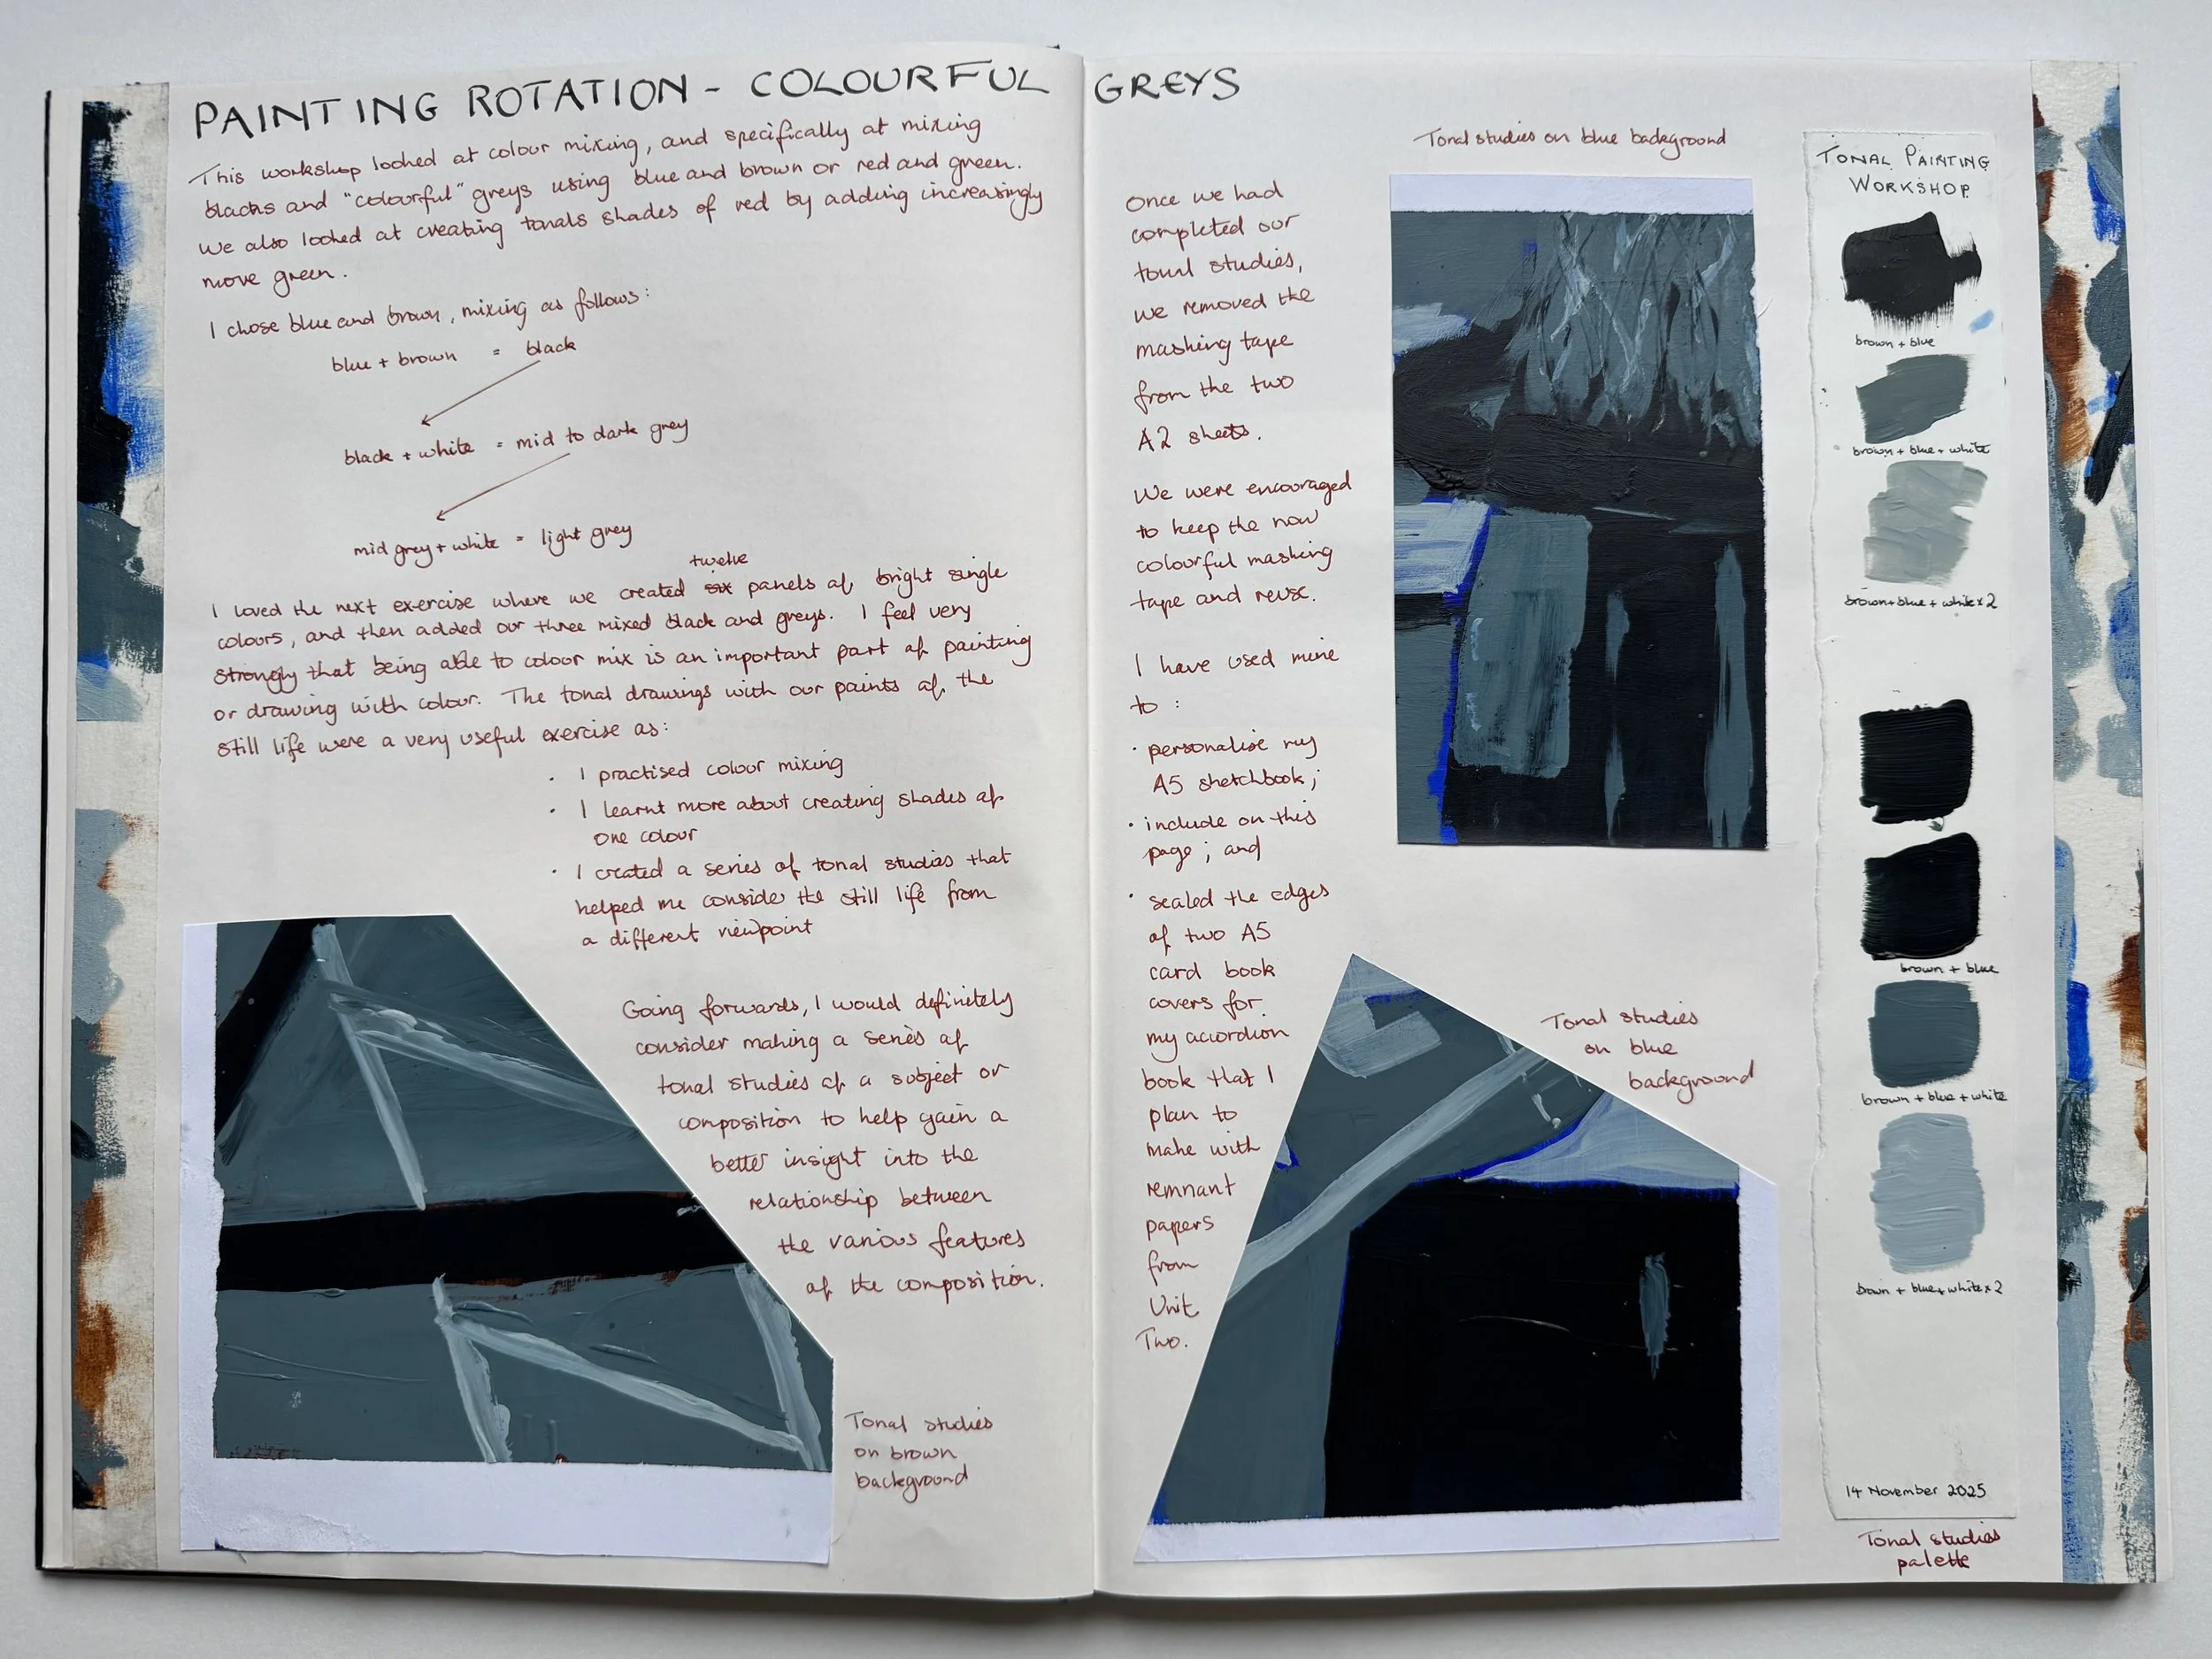 PAINTING ROTATION - COLOURFUL GREYS
This workshop looked at colour mixing, and specifically at mixing
blacks and "colourful" greys using blue and brown or red and green.
We also looked at creating tonals shades of red by adding increasingly
more green.
I chose blue and brown, mixing as follows:
blue + brown = black
black + white = mid to dark grey
mid grey + white = light grey
twelve
I loved the next exercise where we created six panels of bright single
colours, and then added our three mixed black and greys. I feel very
strongly that being able to colour mix is an important part of painting
or drawing with colour. The tonal drawings with our paints of the
still life were a very useful exercise as:
· I practised colour mixing
· I learnt more about creating shades of
one colour
· I created a series of tonal studies that
helped me consider the still life from
a different viewpoint
Going forwards, I would definitely
consider making a series of
tonal studies of a subject or
composition to help gain a
better insight into the
relationship between
the various features
of the composition.
Tonal studies
on brown
background
Once we had
completed our
tonal studies,
we removed the
masking tape
from the two
A2 sheets.
We were encouraged
to keep the now
colourful masking
tape and reuse.
I have used mine
to :
· personalise my
A5 sketchbook;
· include on this
page; and
· sealed the edges
of two A5
card book
covers for
my accordion
book that I
plan to
make with
remnant
papers
from
Unit
Two.
Tonal studies on blue background
Tonal studies
on blue
background
TONAL PAINTING
WORKSHOP
brown + blue
brown + blue + white
brown + blue + white x 2
brown + blue
brown + blue + white
brown + blue + white x 2
14 November 2025
Tonal studies
palette